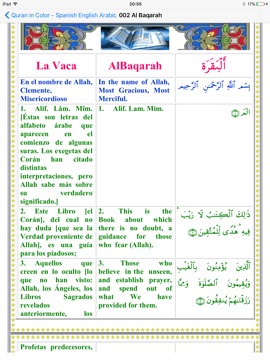 iPad
20:55
17%
Quran in Color – Spanish English Arabic
002 Al Baqarah
La Vaca
AlBaqarah
أَلْبَقَرَة
En el nombre de Allah,
Clemente,
Misericordioso
In the name of Allah,
Most Gracious, Most
Merciful.
بِسْمِ اللَّهِ الرَّحْمَٰنِ الرَّحِيمِ
1. Alif. Lâm. Mîm.
[Éstas son letras del
alfabeto árabe que
aparecen en el
comienzo de algunas
suras. Los exegetas del
Corán han citado
distintas
interpretaciones, pero
Allah sabe más sobre
su verdadero
significado.]
1. Alif. Lam. Mim.
الٓمٓ
2. Este Libro [el
Corán], del cual no
hay duda [que sea la
Verdad proveniente de
Allah], es una guía
para los piadosos;
2. This is the
Book about which
there is no doubt, a
guidance for those
who fear (Allah).
ذَٰلِكَ الْكِتَابُ لَا رَيْبَ
فِيهِ هُدًى لِّلْمُتَّقِينَ
3. Aquellos que
creen en lo oculto [lo
que no han visto:
Allah, los Ángeles, los
Libros Sagrados
revelados
anteriormente, los
3. Those who
believe in the unseen,
and establish prayer,
and spend out of
what We have
provided for them.
الَّذِينَ يُؤْمِنُونَ بِالْغَيْبِ
وَيُقِيمُونَ الصَّلَاةَ وَمِمَّا
رَزَقْنَاهُمْ يُنفِقُونَ
Profetas predecesores,